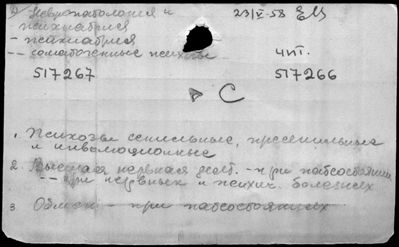 Невропатология и 23/V-58
психиатрия
- психиатрия
-- соматогенные психозы чит.
517267 517266
С
1. Психозы сенильные, пресенильные
и инволюционные
2. Высшая нервная деят. - при патсостояниях
-- при нервных и психич. болезнях
3. Обмен - при патсостояниях